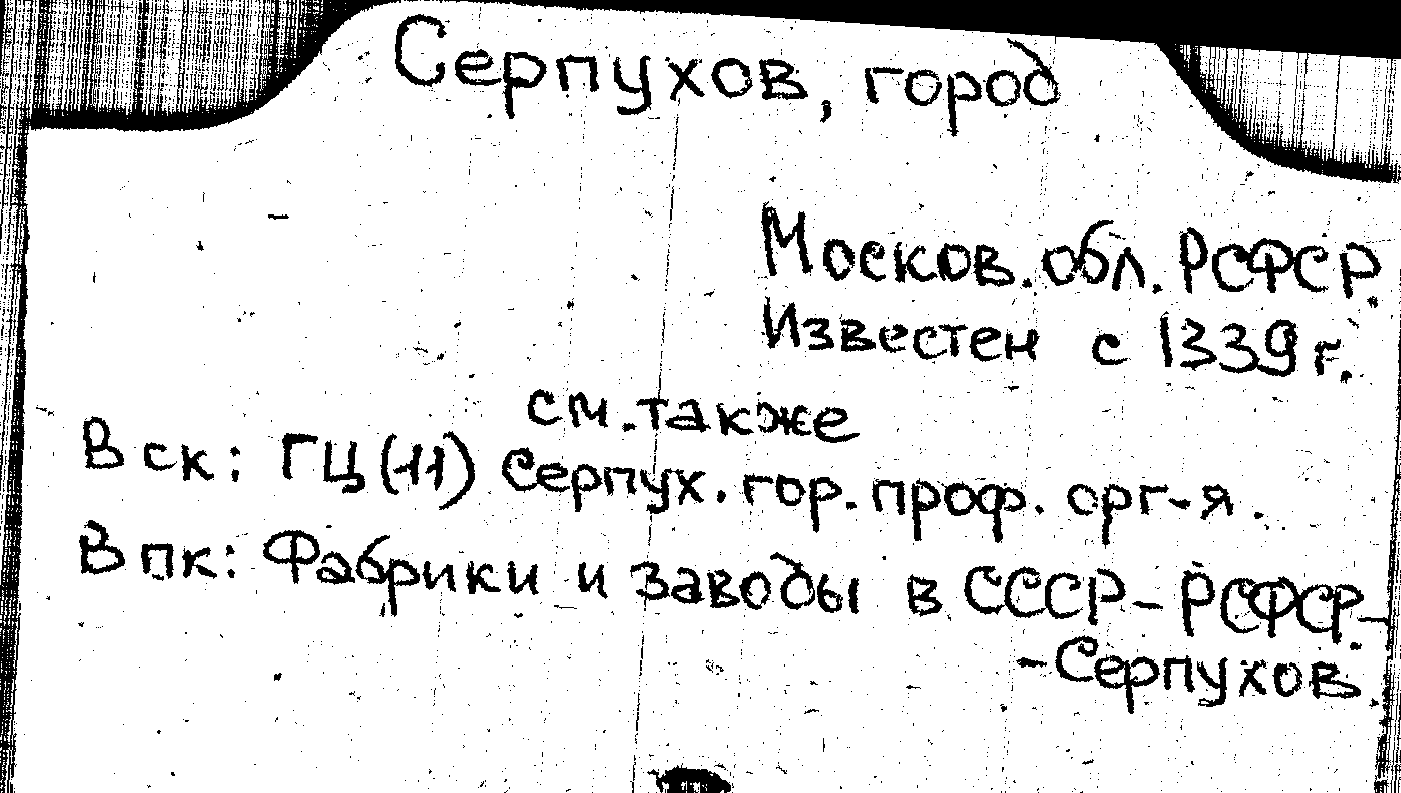 Серпухов, город
Москов. обл. РСФСР.
Известен с 1339 г.
см. также
В ск: ГЦ(11) Серпух. гор. проф. орг-я.
В пк: Фабрики и заводы в СССР - РСФСР -
- Серпухов.